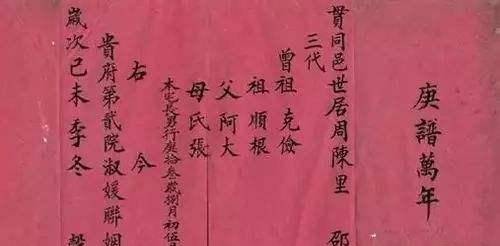 庚譜萬年
貫同邑世居周陳里 邵
三代
曾祖 克儉
祖 順根
父 阿大
母氏張
本宅長男行庚拾叁歲捌月初伍
右 今
貴府第貳院淑媛聯姻
歲次己未季冬